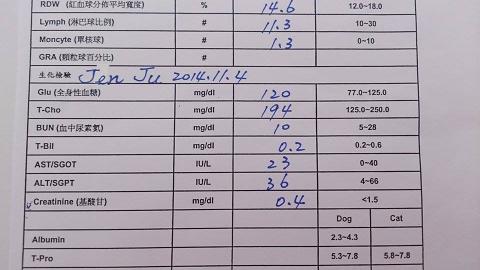 RDW (紅血球分佈平均寬度) % 14.6 12.0~18.0
Lymph (淋巴球比例) # 11.3 10~30
Moncyte (單核球) # 1.3 0~10
GRA (顆粒球百分比) #
生化檢驗 Jen Ju 2014.11.4
Glu (全身性血糖) mg/dl 120 77.0~125.0
T-Cho mg/dl 194 125.0~250.0
BUN (血中尿素氮) mg/dl 10 5~28
T-Bil mg/dl 0.2 0.2~0.6
AST/SGOT IU/L 23 0~40
ALT/SGPT IU/L 36 4~66
Creatinine (基酸甘) mg/dl 0.4 <1.5
Dog Cat
Albumin 2.3~4.3
T-Pro 5.3~7.8 5.8~7.8